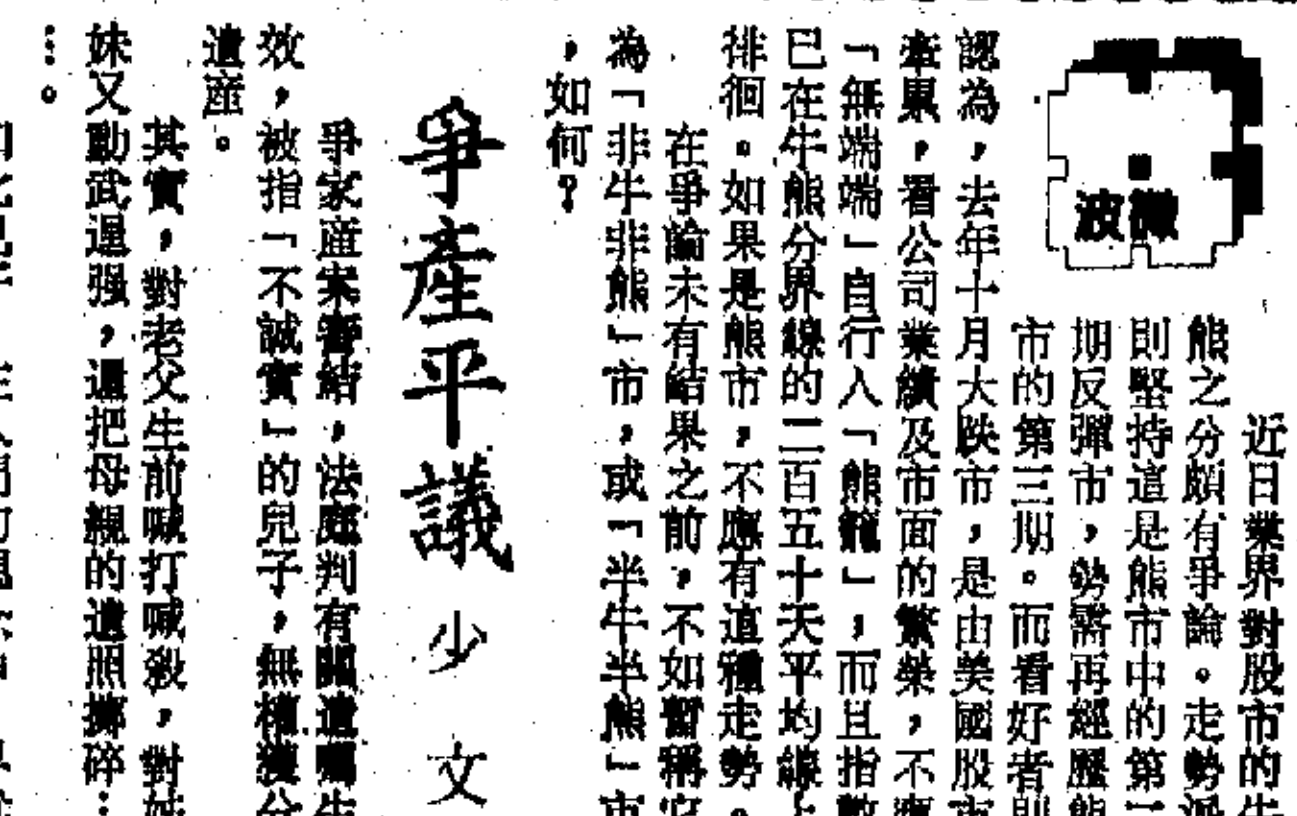 微波
近日業界對股市的牛
熊之分頗有爭論。走勢派
則堅持這是熊市中的第二
期反彈市，勢需再經歷熊
市的第三期。而看好者則
認為，去年十月大跌市，是由美國股市
牽累，看公司業績及市面的繁榮，不應
「無端端」自行入「熊籠」，而且指數
已在牛熊分界線的二百五十天平均線上
排徊。如果是熊市，不應有這種走勢。
在爭論未有結果之前，不如暫稱它
為「非牛非熊」市，或「半牛半熊」市
，如何？
爭產平議
少文
爭家產案審結，法庭判有關遺囑生
效，被指「不誠實」的兒子，無權獲分
遺產。
其實，對老父生前喊打喊殺，對姊
妹又動武逞强，還把母親的遺照擲碎…
…。